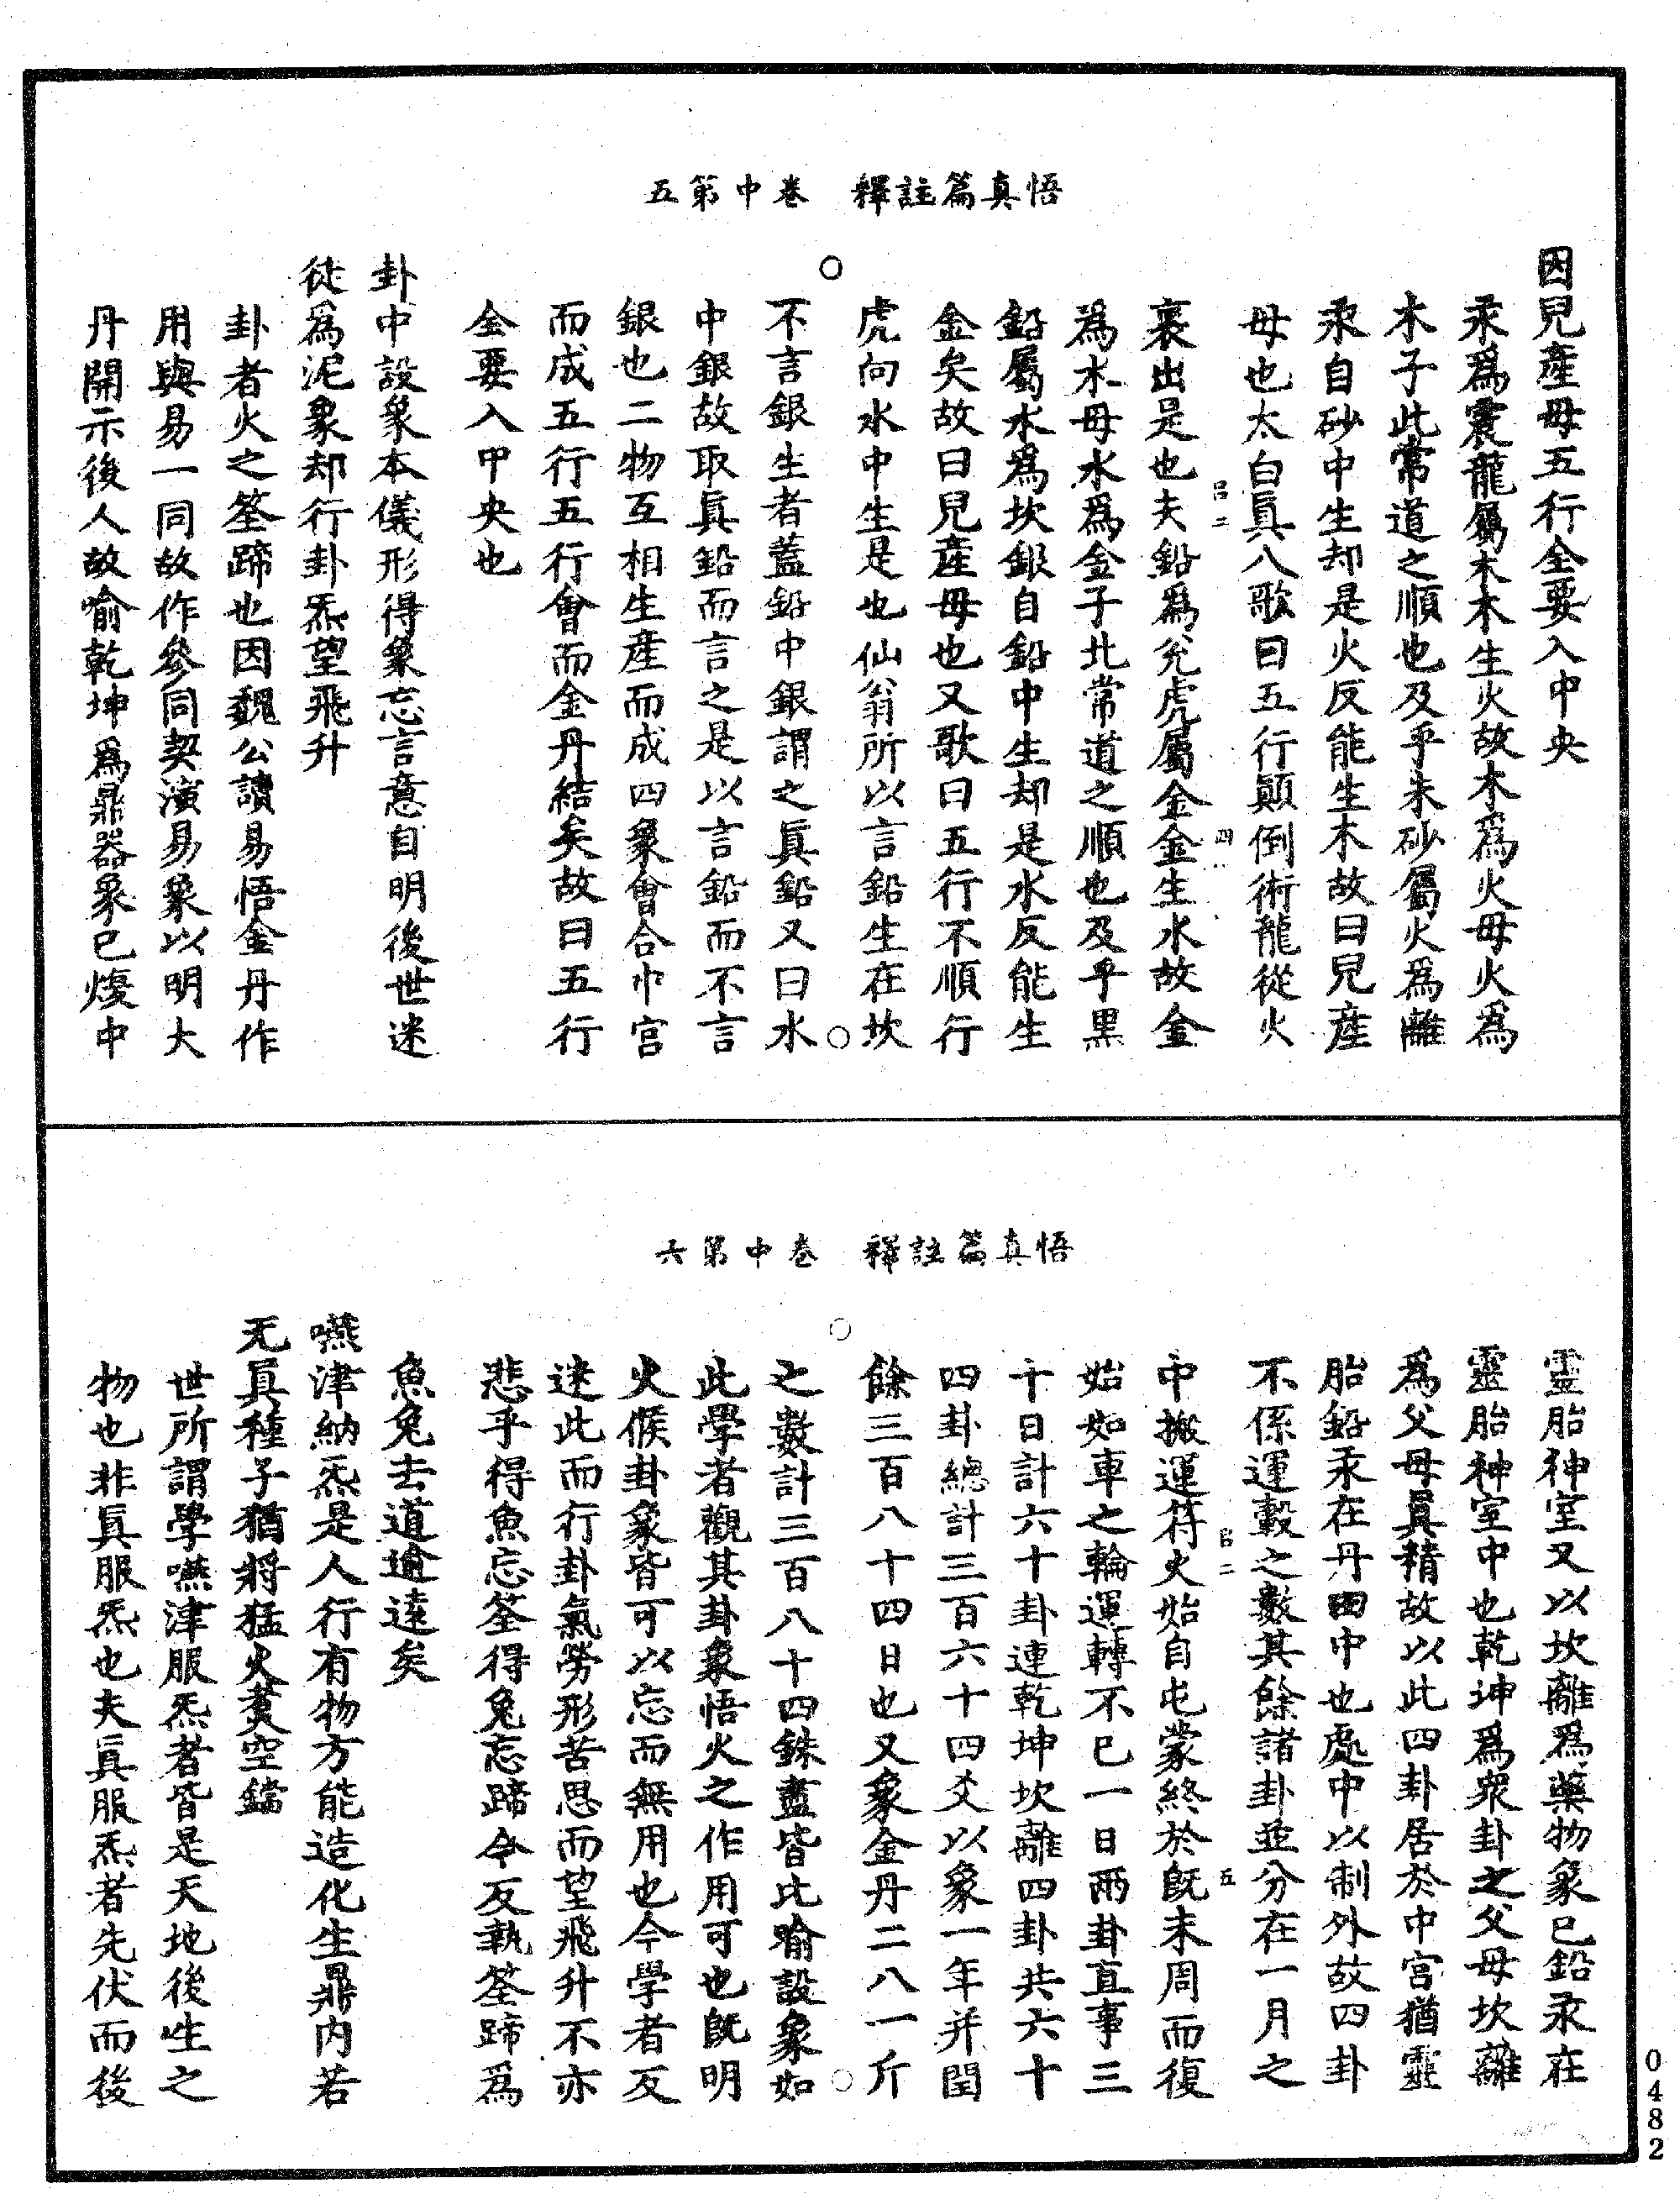 五第中卷　釋註篇真悟
因兒產母五行全要入中央
汞爲震龍屬木木生火故木爲火母火爲
木子此常道之順也及乎朱砂屬火爲離
汞自砂中生却是火反能生木故曰兒產
母也太白眞人歌曰五行顚倒術龍從火
裏出是也夫鉛爲兊虎屬金金生水故金
爲水母水爲金子此常道之順也及乎黑
鉛屬水爲坎銀自鉛中生却是水反能生
金矣故曰兒產母也又歌曰五行不順行
虎向水中生是也仙翁所以言鉛生在坎
不言銀生者蓋鉛中銀謂之眞鉛又曰水
中銀故取眞鉛而言之是以言鉛而不言
銀也二物互相生產而成四象會合中宮
而成五行五行會而金丹結矣故曰五行
全要入中央也
卦中設象本儀形得象忘言意自明後世迷
徒爲泥象却行卦炁望飛升
卦者火之筌蹄也因魏公讀易悟金丹作
用與易一同故作參同契演易象以明大
丹開示後人故喻乾坤爲鼎器象已爐中
六第中卷　釋註篇真悟
靈胎神室又以坎離爲藥物象已鉛汞在
靈胎神室中也乾坤爲衆卦之父母坎離
爲父母眞精故以此四卦居於中宮猶靈
胎鉛汞在丹田中也處中以制外故四卦
不係運轂之數其餘諸卦並分在一月之
中搬運符火始自屯蒙終於旣未周而復
始如車之輪運轉不已一日兩卦直事三
十日計六十卦連乾坤坎離四卦共六十
四卦總計三百六十四爻以象一年并閏
餘三百八十四日也又象金丹二八一斤
之數計三百八十四銖盡皆比喻設象如
此學者觀其卦象悟火之作用可也旣明
火候卦象皆可以忘而無用也今學者反
迷此而行卦氣勞形苦思而望飛升不亦
悲乎得魚忘筌得兔忘蹄今反執筌蹄爲
魚兔去道逾遠矣
嚥津納炁是人行有物方能造化生鼎内若
无眞種子猶將猛火煑空鐺
世所謂學嚥津服炁者皆是天地後生之
物也非眞服炁也夫眞服炁者先伏而後
呂二
四
呂二
五
0482